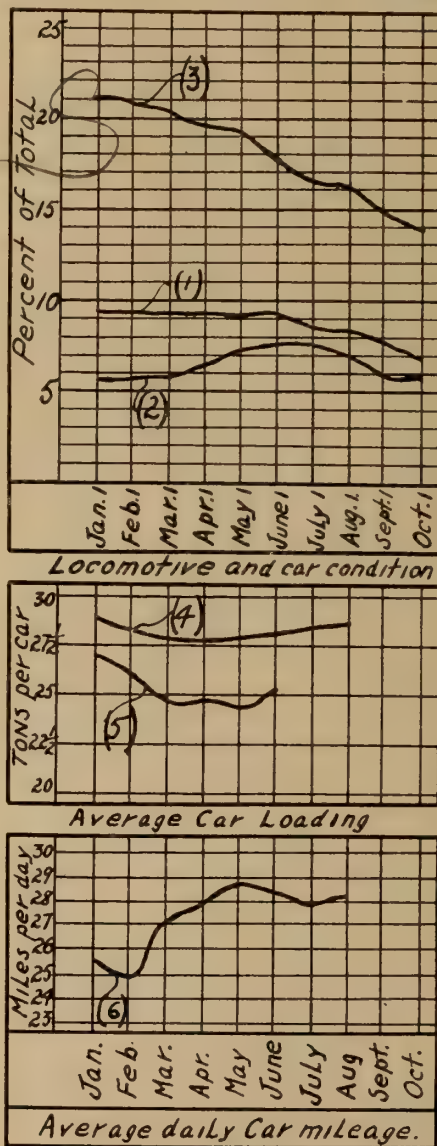 25
(3)
20
Percent of Total
15
(1)
10
5
(2)
Jan.1 Feb.1 Mar.1 Apr.1 May1 June1 July1 Aug.1 Sept.1 Oct.1
Locomotive and car condition
30
(4)
27½
Tons per car
25
(5)
22½
20
Average Car Loading
30
29
28
27
Miles per day
26
25
24
(6)
23
Jan. Feb. Mar. Apr. May June July Aug Sept. Oct.
Average daily Car mileage.